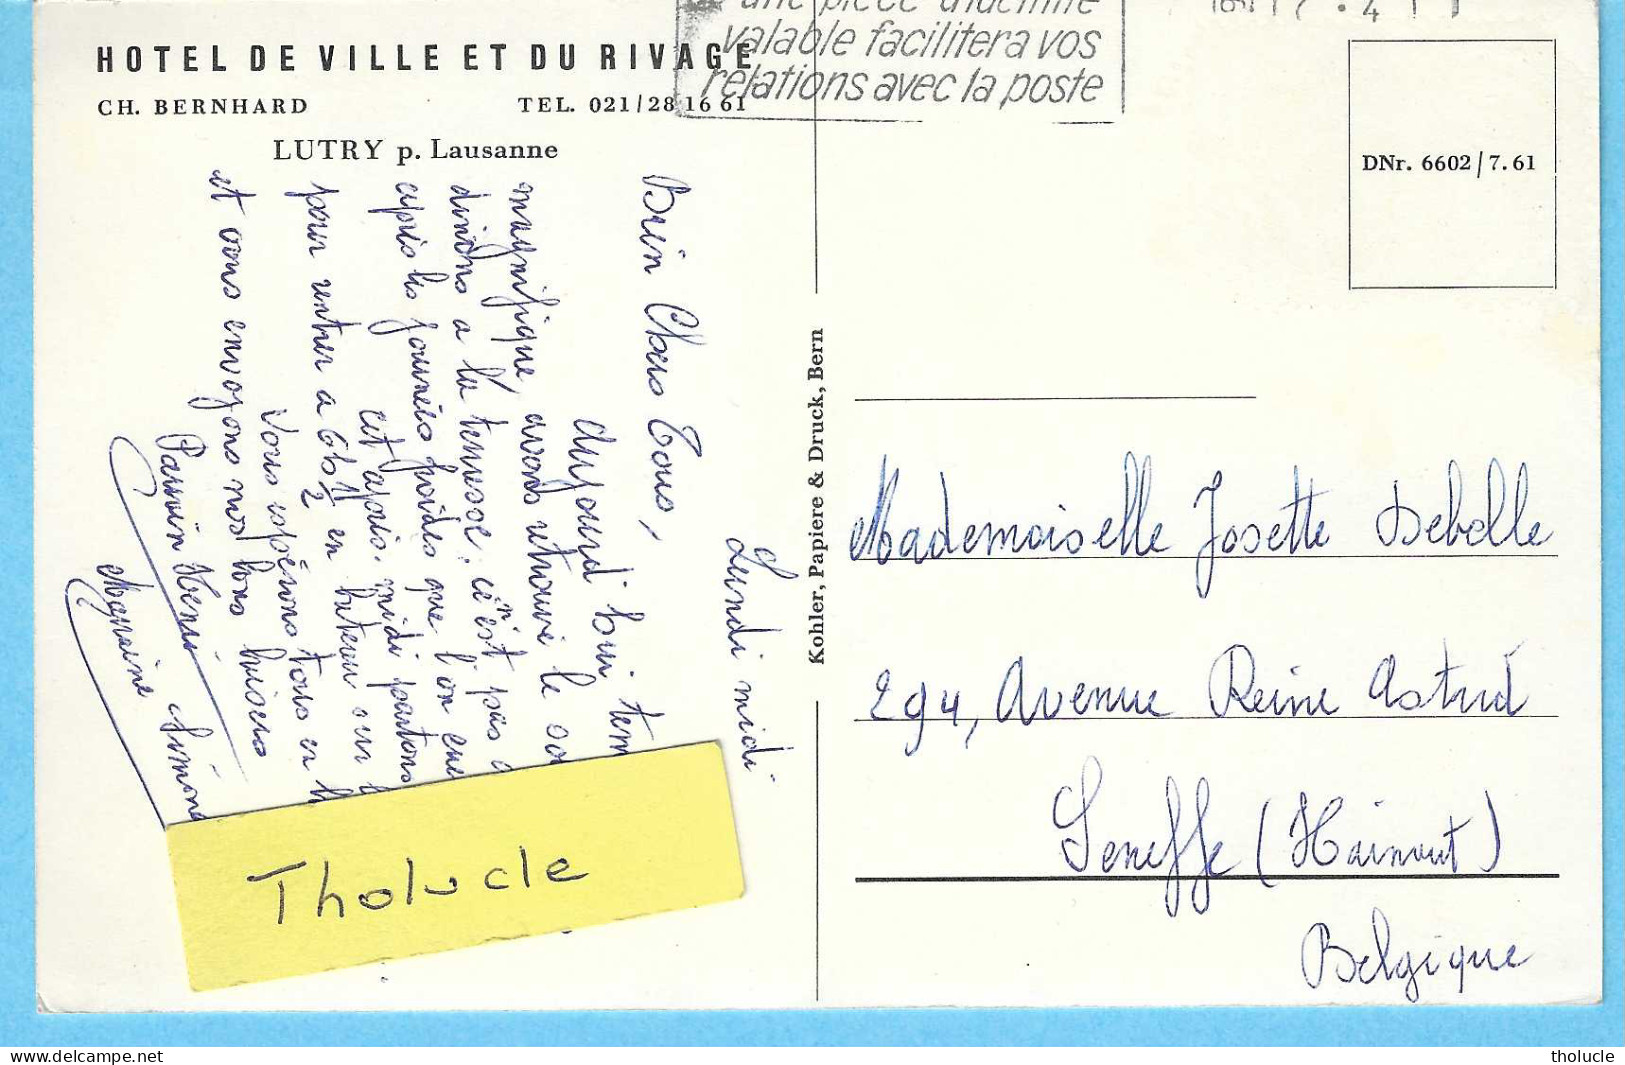 HOTEL DE VILLE ET DU RIVAGE
CH. BERNHARD TEL. 021/28 16 61
LUTRY p. Lausanne
une pièce d'identité
valable facilitera vos
relations avec la poste
DNr. 6602/7.61
Kohler, Papiere & Druck, Bern
Lundi midi
Bien Chers Tous,
aujourd'hui tem
magnifique, avons retrouvé le so
dinons a la terrasse, ce n'est pas
après les journées froides que l'on
cet après-midi partons
pour rentrer a 6h 1/2 en bateau sur
Vous espérons tous en
et vous envoyons nos bons baisers
Parrain Henri
Marraine Simone
Mademoiselle Josette Debolle
294, Avenue Reine Astrid
Seneffe (Hainaut)
Belgique
Tholucle
delcampe.net
tholucle